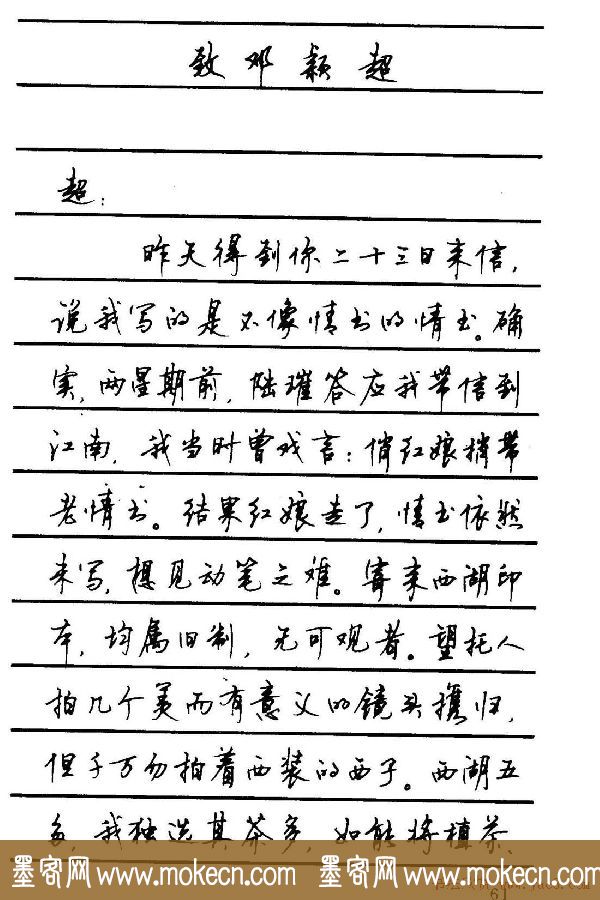 致邓颖超
超：
昨天得到你二十三日来信，
说我写的是不像情书的情书。确
实，两星期前，陆璀答应我带信到
江南，我当时曾戏言：俏红娘捎带
老情书。结果红娘走了，情书依然
未写，想见动笔之难。寄来西湖印
本，均属旧制，无可观者。望托人
拍几个美而有意义的镜头携归，
但千万勿拍着西装的西子。西湖五
多，我独选其茶多，如能将植茶、
墨客网 www.mokecn.com 墨客网 www.mokecn.com
61